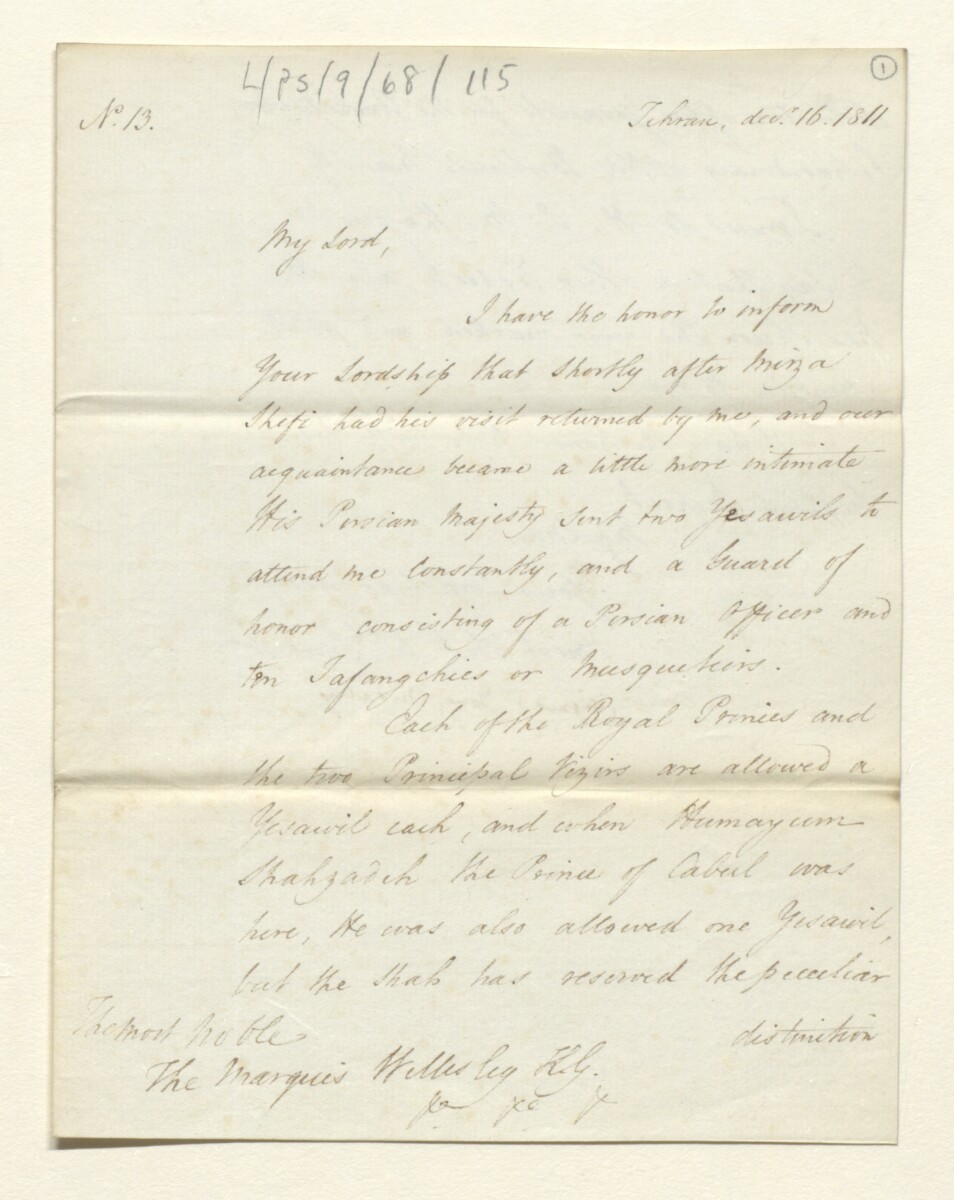 L/PS/9/68/115
1
No. 13.
Tehran, decr. 16. 1811
My Lord,
I have the honor to inform
Your Lordship that shortly after Mirza
Shefi had his visit returned by me, and our
acquaintance became a little more intimate
His Persian Majesty sent two Yesawils to
attend me Constantly, and a Guard of
honor consisting of a Persian Officer and
ten Tafangchies or Musqueteers.
Each of the Royal Princes and
the two Principal Vizirs are allowed a
Yesawil each, and when Humayum
Shahzadeh the Prince of Cabul was
here, He was also allowed one Yesawil,
but the Shah has reserved the peculiar
distinction
The Most Noble
The Marquis Wellesley K.G.
&c &c &c